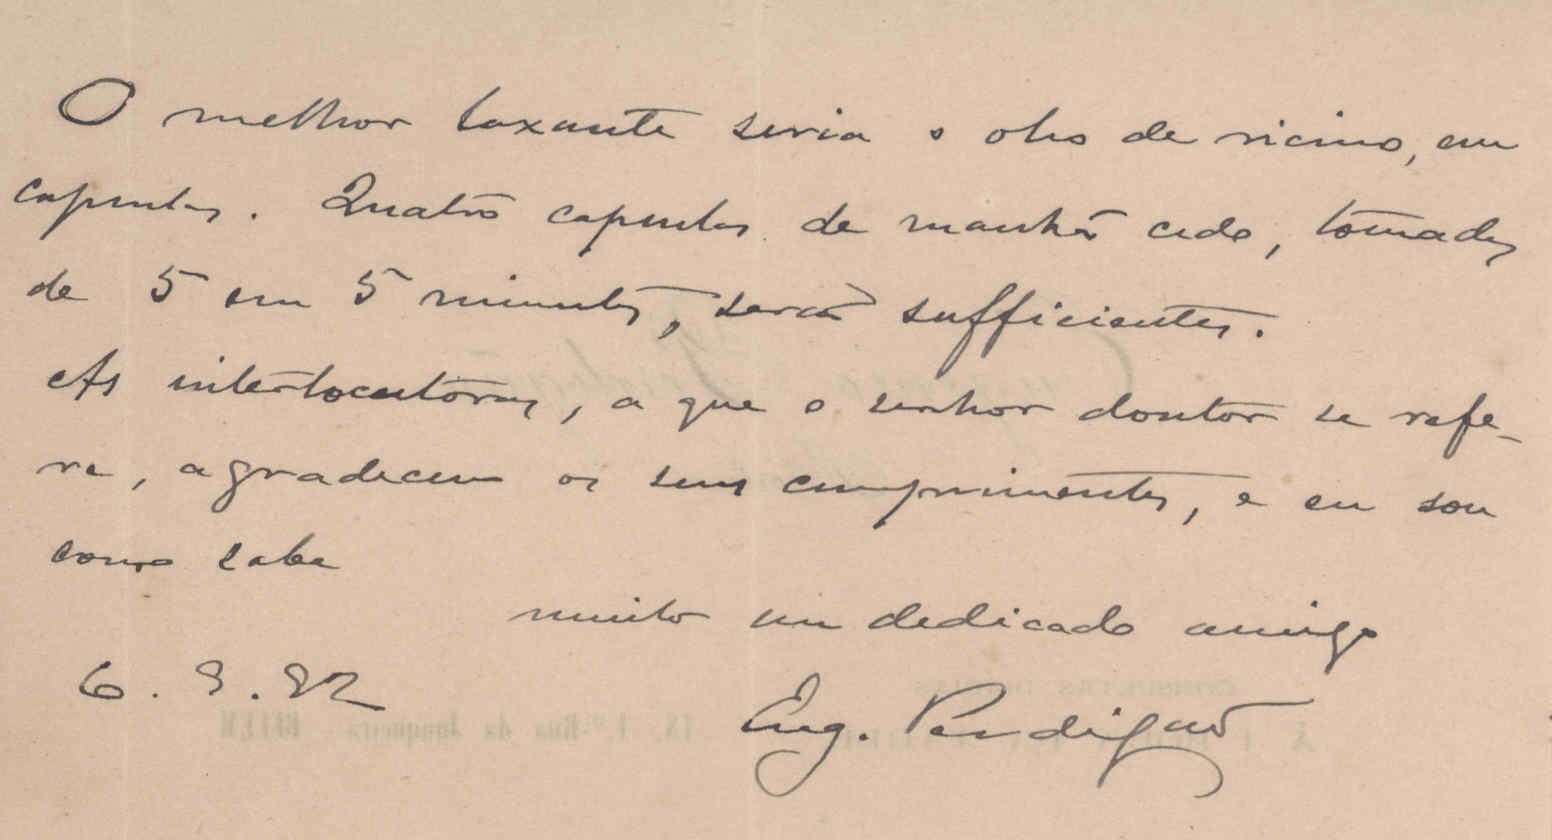 O melhor laxante seria o oleo de ricino, em
capsulas. Quatro capsulas de manhã cedo, tomadas
de 5 em 5 minutos, serão sufficientes.
As interlocutoras, a que o senhor doutor se refe-
re, agradecem os seus cumprimentos, e eu sou
como sabe
muito seu dedicado amigo
6. 9. 92
Eug. Perdigão
CONSULTAS DIARIAS
Rua da Junqueira BELEM